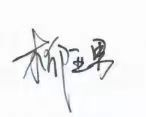 柳亚男